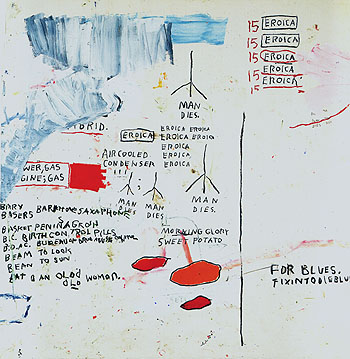 15 EROICA
15 EROICA
15 EROICA
15 EROICA
15 EROICA
MAN
DIES.
BRID.
EROICA
EROICA EROICA
EROICA EROICA
EROICA
EROICA
AIR COOLED
CONDENSER
WER, GAS
GINE; GAS
MAN
DIES.
MAN
DIES.
MAN
DIES.
BARY
BARITONE SAXAPHONE
BASKET
B.C. BIRTH CONTROL PILLS
BEAM TO LOOK
BEAN TO SUN
EAT AN OLD
OLD WOMAN.
MORNING GLORY
SWEET POTATO
FOR BLUES.
FIXIN TO DIE BLU